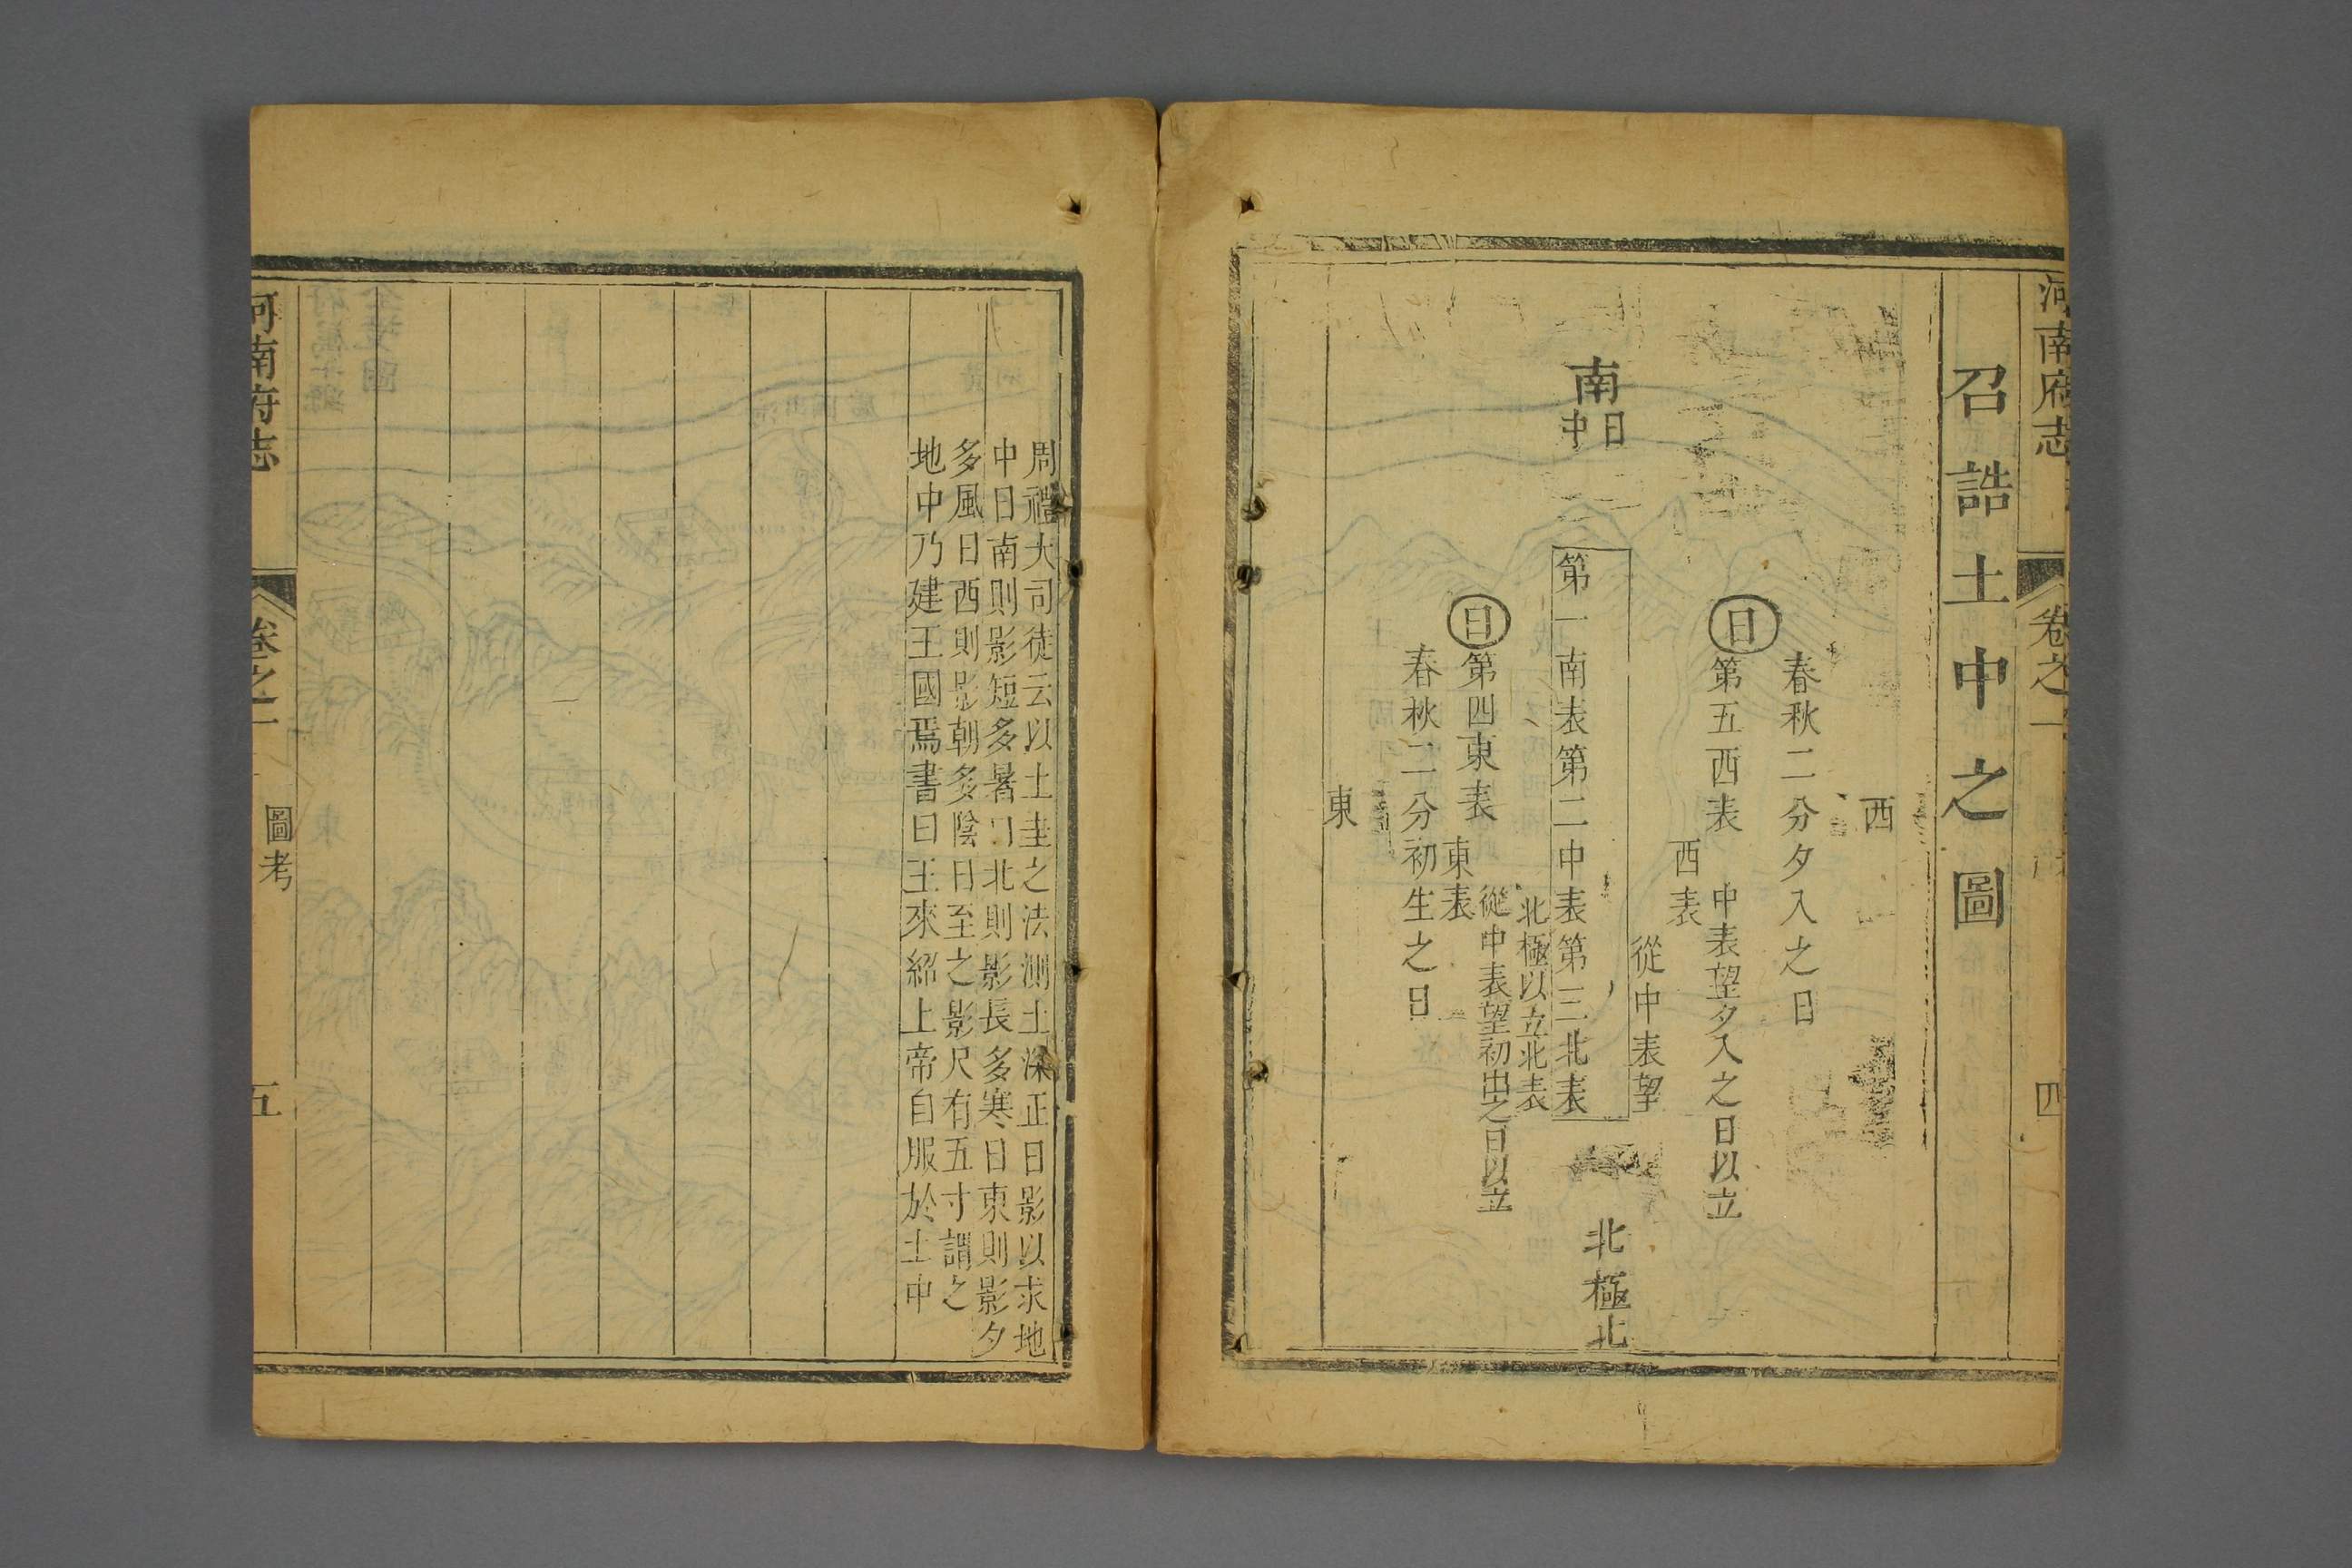 河南府志
卷之一
四
召誥土中之圖
西
春秋二分夕入之日
日
第五西表
中表望夕入之日以立
西表
從中表望
南
日中
第一南表第二中表第三北表
北極以立北表
北極北
日
第四東表
從中表望初出之日以立
東表
春秋二分初生之日
東
周禮大司徒云以土圭之法測土深正日影以求地
中日南則影短多暑日北則影長多寒日東則影夕
多風日西則影朝多陰日至之影尺有五寸謂之
地中乃建王國焉書曰王來紹上帝自服於土中
河南府志
卷之一
圖考
五